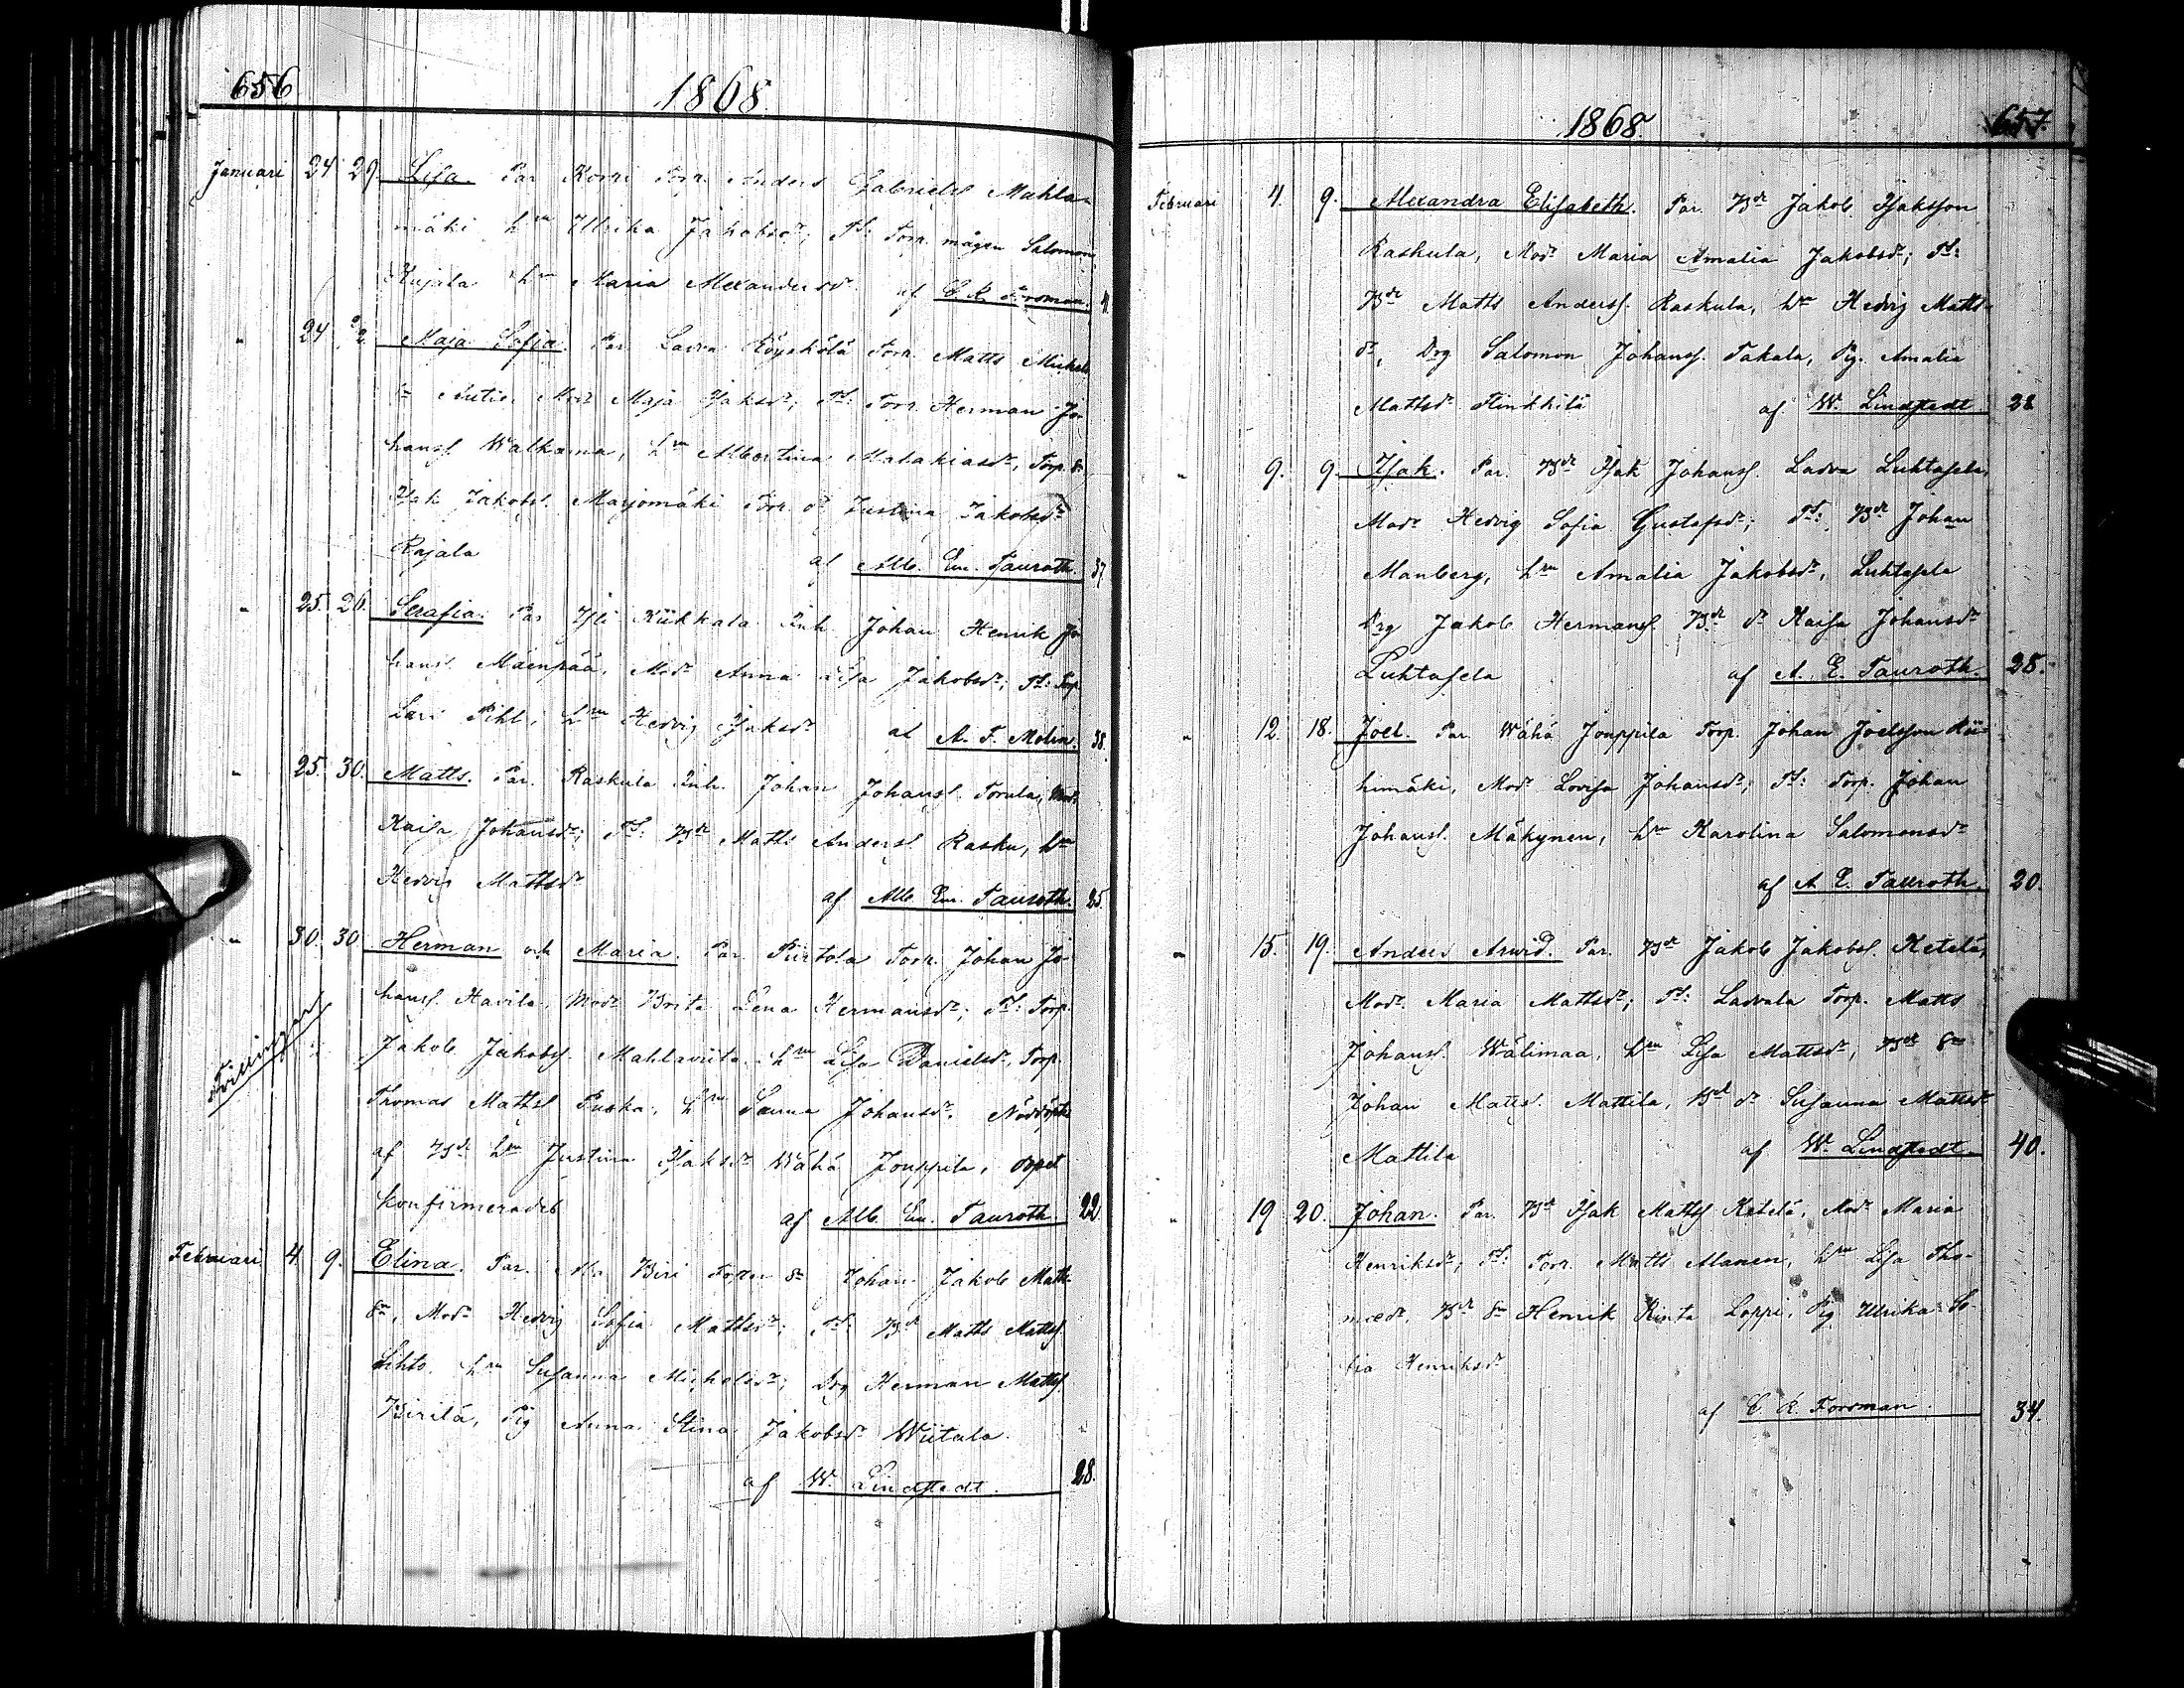 656
1868.
Januari 24 29. Lisa. Par Korri Torp. Anders Gabriels. Mahla-
mäki h:ru Ullrika Jakobsd:r; T:t: Torp. mågen Salomon
Kujala h:ru Maria Alexandersd:r af C. R. Forsman. 41.
" 24 2/2. Maja Sofia. Par. Ladva Köyskölä Torp. Matts Michels
s:n Antie. Mod:r Maja Isaksd:r; T:t: Torp. Herman Jo-
hanss. Walkama, h:ru Albertina Malakiasd:r, Torp. s:n
Isak Jakobs. Marjomäki Torp. d:r Justina Jakobsd:r
Rajala af Alb. Em. Tauroth. 37.
" 25. 26. Serafia. Par Yli Kükkala Inh. Johan Henrik Jo
hans. Mäenpää, Mod:r Anna Lisa Jakobsd:r; T:t: Torp.
Lars Pihl, h:ru Hedvig Isaksd:r af A. F. Molin. 38.
" 25. 30. Matts. Par. Raskula Inh. Johan Johans. Torula, Mod:r
Kaisa Johansd:r; T:t: B:de Matts Anders. Rasku, h:ru
Hedvig Mattsd:r af Alb. Em. Tauroth. 25.
" 30. 30 Herman och Maria. Par Piirtola Torp. Johan Jo-
hanss. Havila, Mod:r Brita Lena Hermansd:r; T:t: Torp.
Tvillingar
Jakob Jakobs. Mahlaviita h:ru Lisa Danielsd:r, Torp.
Thomas Matts. Puska, h:ru Sanna Johansd:r. Nöddöpte
af B:de h:ru Justina Isaksd:r Wähä Jouppila, dopet
konfirmerades af Alb. Em. Tauroth. 22.
Februari 4. 9. Elina. Par. Ala Biri Torp. s:n Johan Jakob Matts-
s:n, Mod:r Hedvig Sofia Mattsd:r; T:t: B:de Matts Matts.
Lehto. h:ru Susanna Michelsd:r; Drg Herman Matts.
Birilä, Pig Anna Stina Jakobsd:r Wiitala.
af W. Lindstedt. 28.
1868.
657.
Februari 4. 9. Alexandra Elisabeth. Par. B:de Jakob Isaksson
Raskula, Mod:r Maria Amalia Jakobsd:r; T:t:
B:de Matts Anderss. Raskula, h:ru Hedvig Matts-
d:r, Drg Salomon Johanss. Takala, Pig. Amalia
Mattsd:r Flinkkilä af W. Lindstedt 28
" 9. 9. Isak. Par. B:de Isak Johanss. Ladva Luhtasela,
Mod:r Hedvig Sofia Gustafsd:r; T:t: B:de Johan
Manberg, h:ru Amalia Jakobsd:r, Luhtasela
Drg Jakob Hermanss. B:de d:r Kaisa Johansd:r
Luhtasela af A. E. Tauroth. 25.
" 12. 18. Joel. Par Wähä Jouppila Torp. Johan Joelsson Rii-
himäki, Mod:r Lovisa Johansd:r; T:t: Torp. Johan
Johans. Mäkynen, h:ru Karolina Salomonsd:r
af A. E. Tauroth. 20.
" 15. 19. Anders Arwid. Par. B:de Jakob Jakobs. Ketelä,
Mod:r Maria Mattsd:r; T:t: Ladvala Torp. Matts
Johans. Wälimaa, h:ru Lisa Mattsd:r, B:de s:n
Johan Matts. Mattila, B:de d:r Susanna Mattsd:r
Mattila af W. Lindstedt. 40.
" 19 20. Johan. Par. B:de Isak Matts. Ketelä, Mod:r Maria
Henriksd:r; T:t: Torp. Matts Alanen, h:ru Lisa Tho-
masd:r, B:de s:n Henrik Rinta Loppi, Pig Ullrika So-
fia Henriksd:r
af C. R. Forsman. 34.